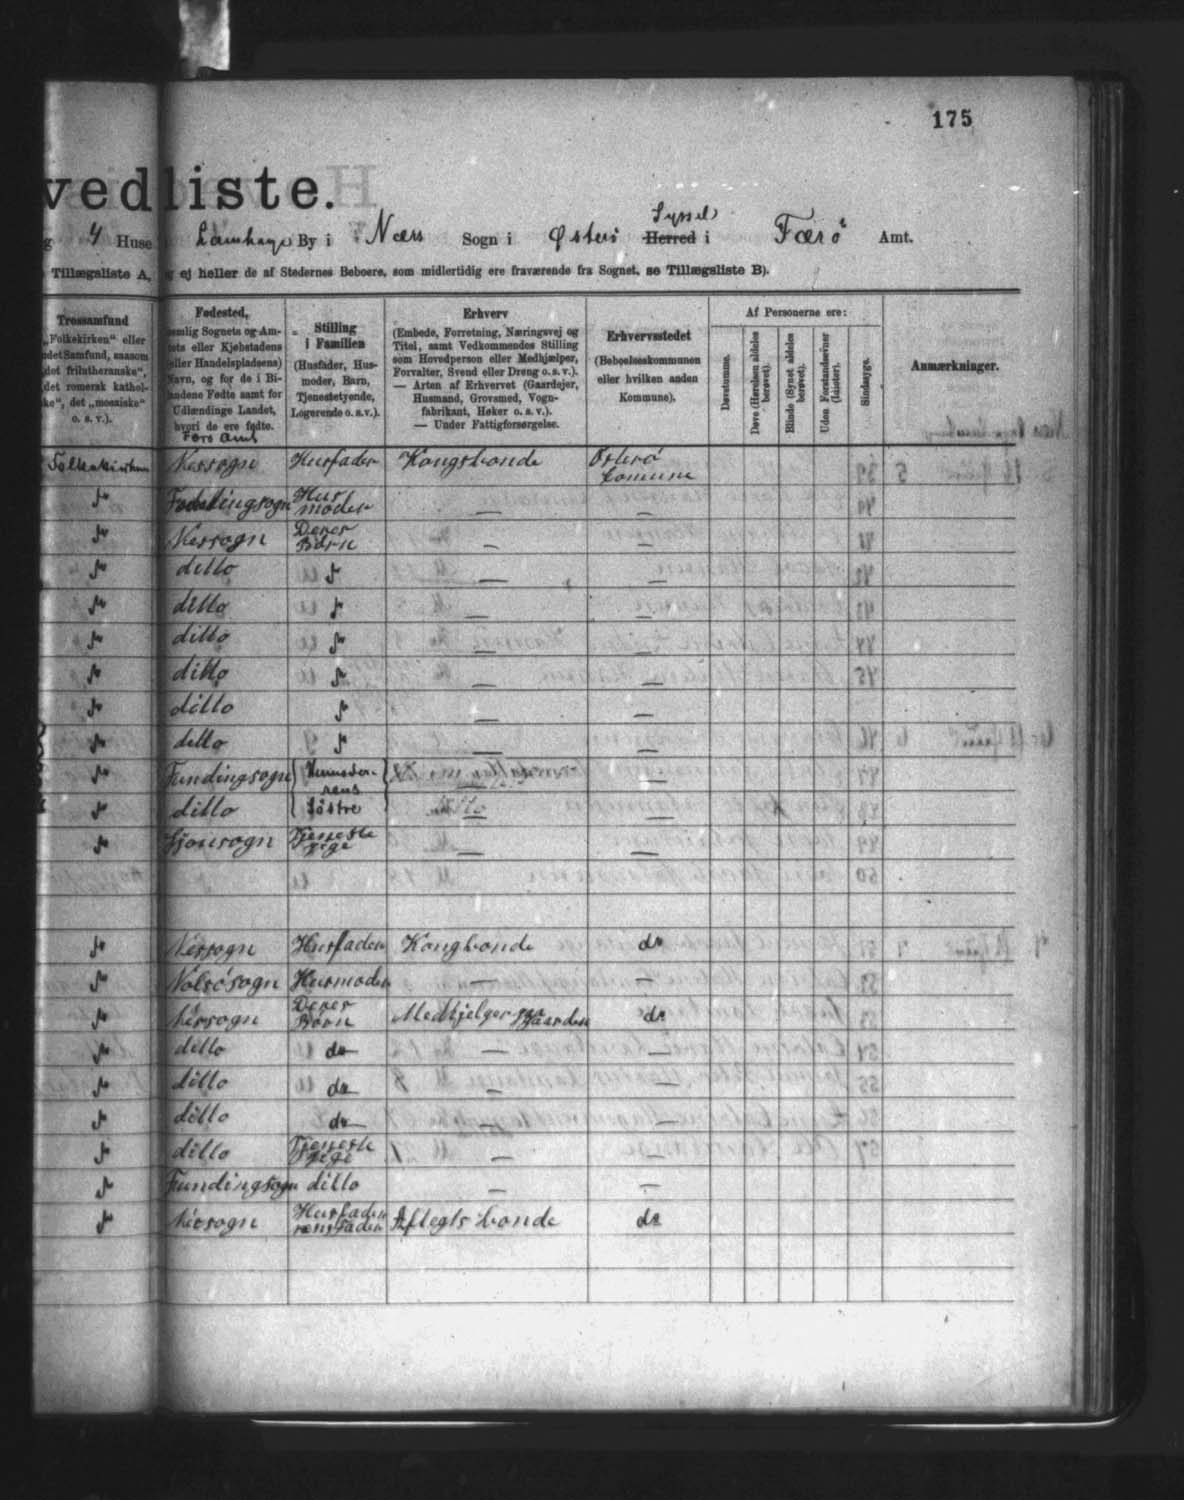 175
vedliste.
Syssel
4 Huse Lamhage By i Næs Sogn i Østerö Herred i Færö Amt.
Tillægsliste A, ej heller de af Stedernes Beboere, som midlertidig ere fraværende fra Sognet, se Tillægsliste B).
Trossamfund
„Folkekirken" eller
andet Samfund, saasom
„det frilutheranske",
„det romersk kathol-
ske", det „mosaiske"
o. s. v.).
Fødested,
nemlig Sognets og Am-
tets eller Kjøbstadens
(eller Handelspladsens)
Navn, og for de i Bi-
landene Fødte samt for
Udlændinge Landet,
hvori de ere fødte.
Færö Amt
Stilling
i Familien
(Husfader, Hus-
moder, Barn,
Tjenestetyende,
Logerende o. s. v.).
Erhverv
(Embede, Forretning, Næringsvej og
Titel, samt Vedkommendes Stilling
som Hovedperson eller Medhjælper,
Forvalter, Svend eller Dreng o. s. v.).
— Arten af Erhvervet (Gaardejer,
Husmand, Grovsmed, Vogn-
fabrikant, Høker o. s. v.).
— Under Fattigforsørgelse.
Erhvervsstedet
(Beboelseskommunen
eller hvilken anden
Kommune).
Af Personerne ere:
Døvstumme.
Døve (Hørelsen aldeles
berøvet).
Blinde (Synet aldeles
berøvet).
Uden Forstandsevner
(Idioter).
Sindssyge.
Anmærkninger.
Folkekirken Nessogn Husfader Kongsbonde Österö
Comune
Hus
moder — —
Nessogn Deres
Børn — —
ditto — —
ditto — —
ditto — —
ditto — —
ditto — —
ditto — —
Fundingsogn Husmode-
rens
ditto Söstre — —
Tjeneste
pige — —
Nessogn Husfader Kongbonde do
Nolsösogn Husmoder — —
Nessogn Deres
Børn Medhjelper Gaarden do
ditto do — —
ditto do — —
ditto do — —
ditto Tjeneste
pige — —
Fundingsogn ditto — —
Nessogn Husfade
rens fader Aflegts bonde do